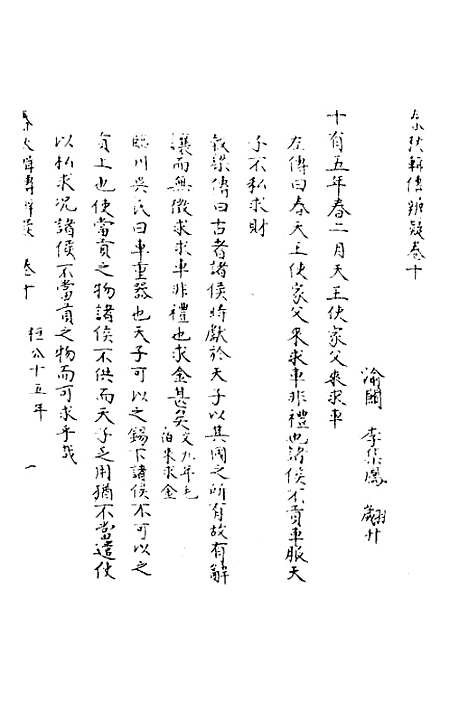 春秋輯傳辨疑卷十
渝關 李集鳳 翽升
十有五年春二月天王使家父來求車
左傳曰春天王使家父來求車非禮也諸侯不貢車服天
子不私求財
穀梁傳曰古者諸侯時獻於天子以其國之所有故有辭
讓而無徵求求車非禮也求金甚矣文九年毛伯來求金
臨川吳氏曰車重器也天子可以之錫下諸侯不可以之
貢上也使當貢之物諸侯不供而天子乏用猶不當遣使
以私求况諸侯不當貢之物而可求乎哉
春秋輯傳辨疑 卷十 桓公十五年 一